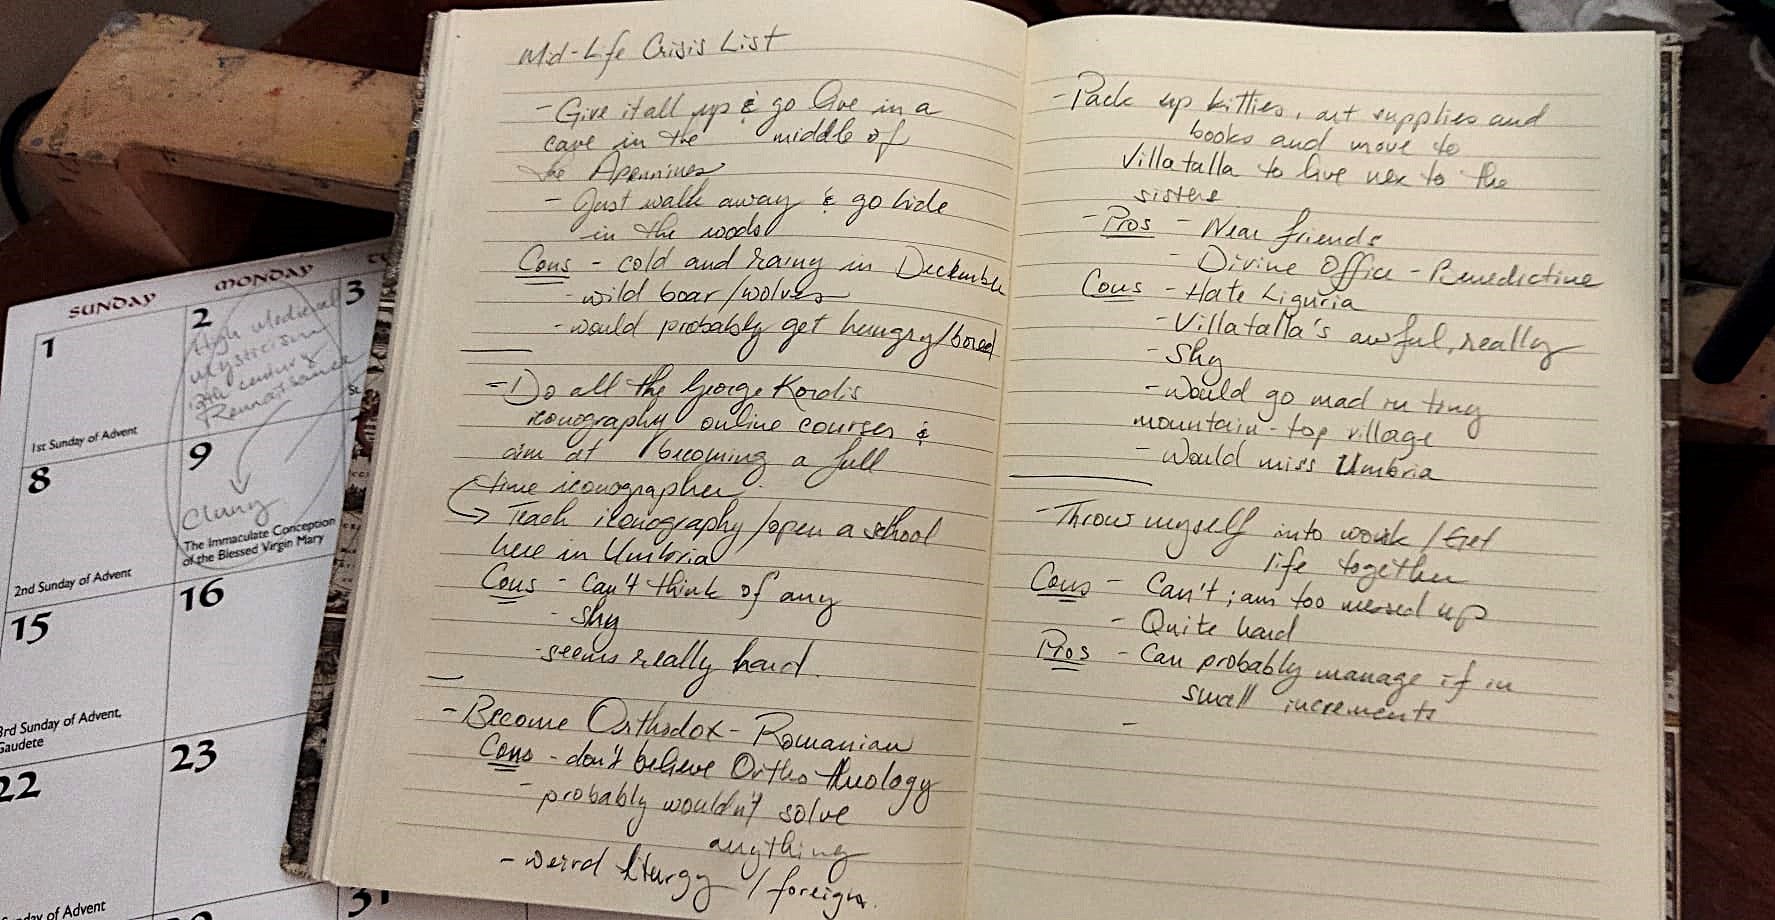 Mid-Life Crisis List
- Give it all up & go live in a
cave in the middle of
the Apennines
- Just walk away & go hide
in the woods
Cons - cold and rainy in December
- wild boar/wolves
- would probably get hungry/bored
- Do all the George Kordis
iconography online courses &
aim at becoming a full
time iconographer.
→ Teach iconography/open a school
here in Umbria
Cons - can't think of any
- shy
- seems really hard.
- Become Orthodox - Romanian
Cons - don't believe Ortho theology
- probably wouldn't solve
anything
- weird liturgy / foreign.
- Pack up kitties, art supplies and
books and move to
Villatalla to live nex to the
sisters
- Pros - Near friends
- Divine Office - Benedictine
Cons - Hate Liguria
- Villatalla's awful, really
- shy
- would go mad in tiny
mountain-top village
- would miss Umbria
- Throw myself into work / Get
life together
Cons - Can't; am too messed up
- Quite hard
Pros - Can probably manage if in
small increments
-
SUNDAY MONDAY
1 2 3
High Medieval
Mysticism
13th century &
Rennaissance
1st Sunday of Advent
8 9
Cluny
The Immaculate Conception
of the Blessed Virgin Mary
2nd Sunday of Advent
15 16
3rd Sunday of Advent,
Gaudete
22 23
31